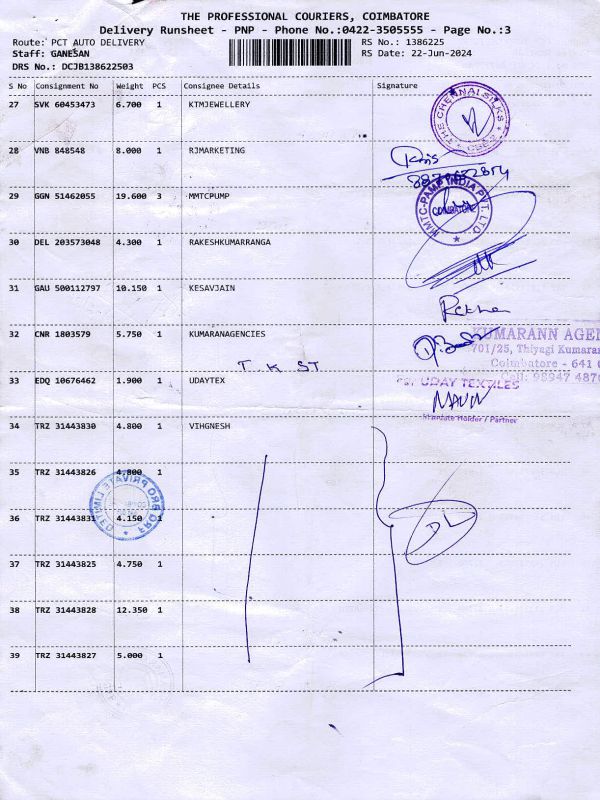 THE PROFESSIONAL COURIERS, COIMBATORE
Delivery Runsheet - PNP - Phone No.:0422-3505555 - Page No.:3
Route: PCT AUTO DELIVERY RS No.: 1386225
Staff: GANESAN RS Date: 22-Jun-2024
DRS No.: DCJB138622503
S No Consignment No Weight PCS Consignee Details Signature
27 SVK 60453473 6.700 1 KTMJEWELLERY
THE CHENNAI SILKS
28 VNB 848548 8.000 1 RJMARKETING
29 GGN 51462055 19.600 3 MMTCPUMP
MMTC-PAMP INDIA PVT. LTD
COIMBATORE
30 DEL 203573048 4.300 1 RAKESHKUMARRANGA
31 GAU 500112797 10.150 1 KESAVJAIN
32 CNR 1803579 5.750 1 KUMARANAGENCIES
KUMARANN AGEN
701/25, Thiyagi Kumaran
Coimbatore - 641 0
Cell: 98947 4870
T. K ST
33 EDQ 10676462 1.900 1 UDAYTEX
UDAY TEXTILES
Mandate Holder / Partner
34 TRZ 31443830 4.800 1 VIHGNESH
35 TRZ 31443826 4.800 1
PRO PRIVATE LIMITED
36 TRZ 31443831 4.150 1
37 TRZ 31443825 4.750 1
38 TRZ 31443828 12.350 1
39 TRZ 31443827 5.000 1